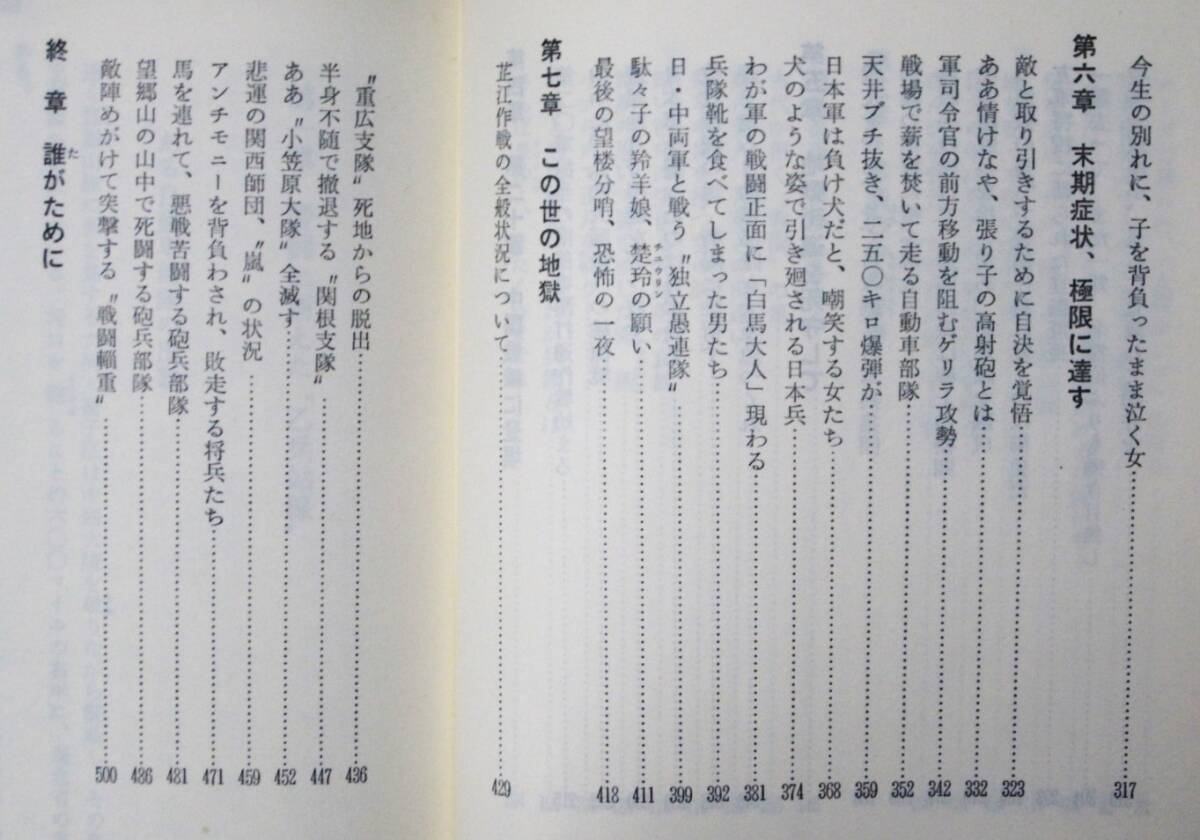 今生の別れに、子を背負ったまま泣く女……317
第六章　末期症状、極限に達す
敵と取り引きするために自決を覚悟……323
ああ情けなや、張り子の高射砲とは……332
軍司令官の前方移動を阻むゲリラ攻勢……342
戦場で薪を焚いて走る自動車部隊……352
天井ブチ抜き、二五〇キロ爆弾が……359
日本軍は負け犬だと、嘲笑する女たち……368
犬のような姿で引き廻される日本兵……374
わが軍の戦闘正面に「白馬大人」現わる……381
兵隊靴を食べてしまった男たち……392
日・中両軍と戦う〝独立愚連隊〟……399
駄々子の羚羊娘、楚玲の願い……411
チユウリン
最後の望楼分哨、恐怖の一夜……418
第七章　この世の地獄
芷江作戦の全般状況について……429
〝重広支隊〟死地からの脱出……436
半身不随で撤退する〝関根支隊〟……447
ああ〝小笠原大隊〟全滅す……452
悲運の関西師団、〝嵐〟の状況……459
アンチモニーを背負わされ、敗走する将兵たち……471
馬を連れて、悪戦苦闘する砲兵部隊……481
望郷山の山中で死闘する砲兵部隊……486
敵陣めがけて突撃する〝戦闘輜重〟……500
終　章　誰がために
た